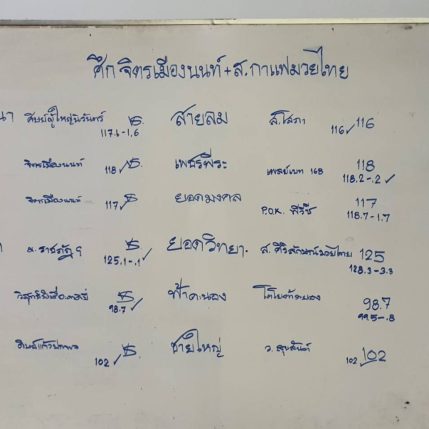 ศึก จิตรเมืองนนท์ + ส.กาแฟมวยไทย
นา ศิษย์ผู้ใหญ่นิรันดร์ สายลม ส.โสภา 116
117.4-1.6 116✓
จิตรเมืองนนท์ 118✓ เพชรพีระ เพชรเบท 168 118
118.2-.2✓
จิตรเมืองนนท์ 117✓ ยอดมงคล P.O.K. 117
118.7-1.7
ม.ราชภัฏ ยอดวิทยา ส.ศิริลักษณ์มวยไทย 125
125.1-.1✓ 128.3-3.3
ฟ้าคะนอง 98.7
98.7✓ 99.5-.8
ชายใหญ่ 102
102✓ 102✓